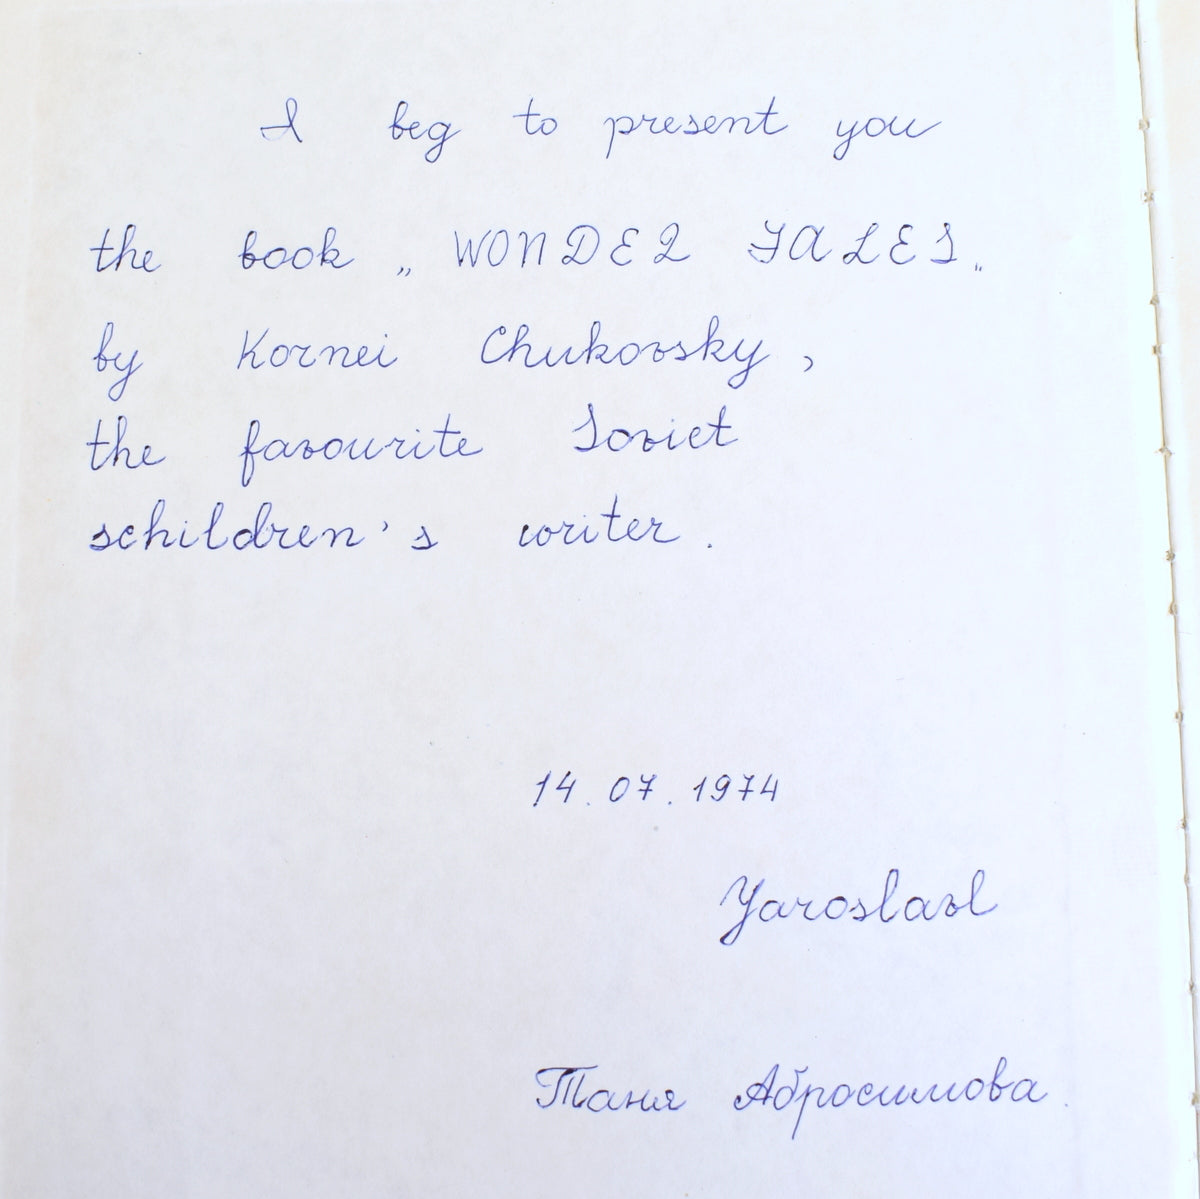 I beg to present you
the book „ WONDER TALES „
by Kornei Chukovsky ,
the favourite Soviet
schildren's writer .
14. 07. 1974
Yaroslavl
Таня Абросимова.